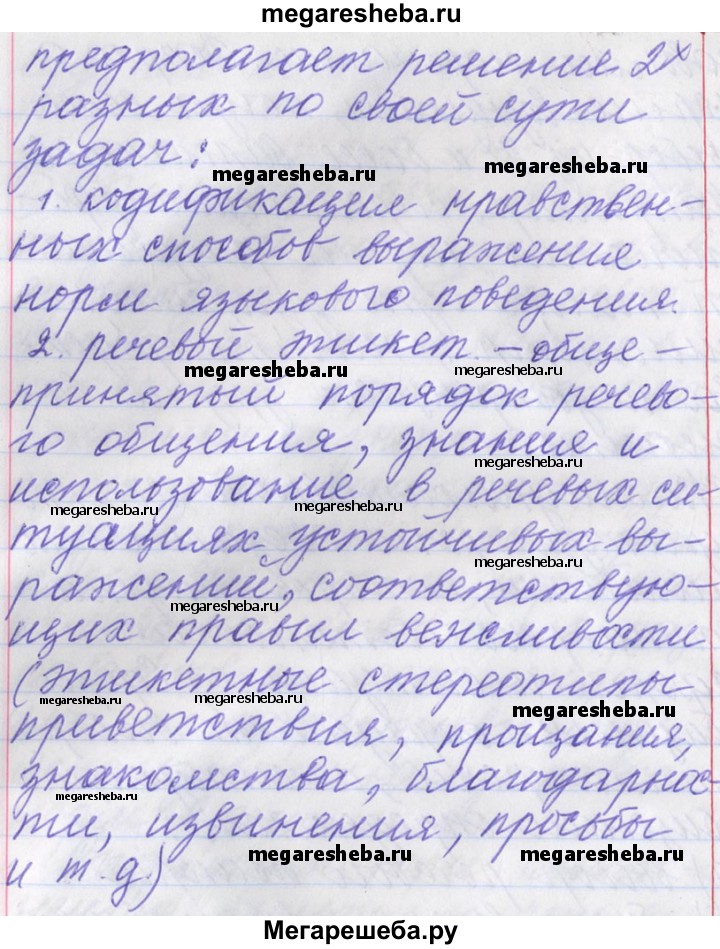 megaresheba.ru
предполагает решение 2х
разных по своей сути
задач:
megaresheba.ru megaresheba.ru
1. кодификация нравствен-
ных способов выражения
норм языкового поведения.
2. речевой этикет – обще-
megaresheba.ru megaresheba.ru
принятый порядок речево-
го общения, знание и
megaresheba.ru
использование в речевых си-
megaresheba.ru megaresheba.ru
туациях устойчивых вы-
megaresheba.ru
ражений, соответствую-
megaresheba.ru
щих правил вежливости
(этикетные стереотипы
megaresheba.ru megaresheba.ru megaresheba.ru
приветствия, прощания,
знакомства, благодарнос-
megaresheba.ru
ти, извинения, просьбы
megaresheba.ru megaresheba.ru
и т.д.)
Мегарешеба.ру